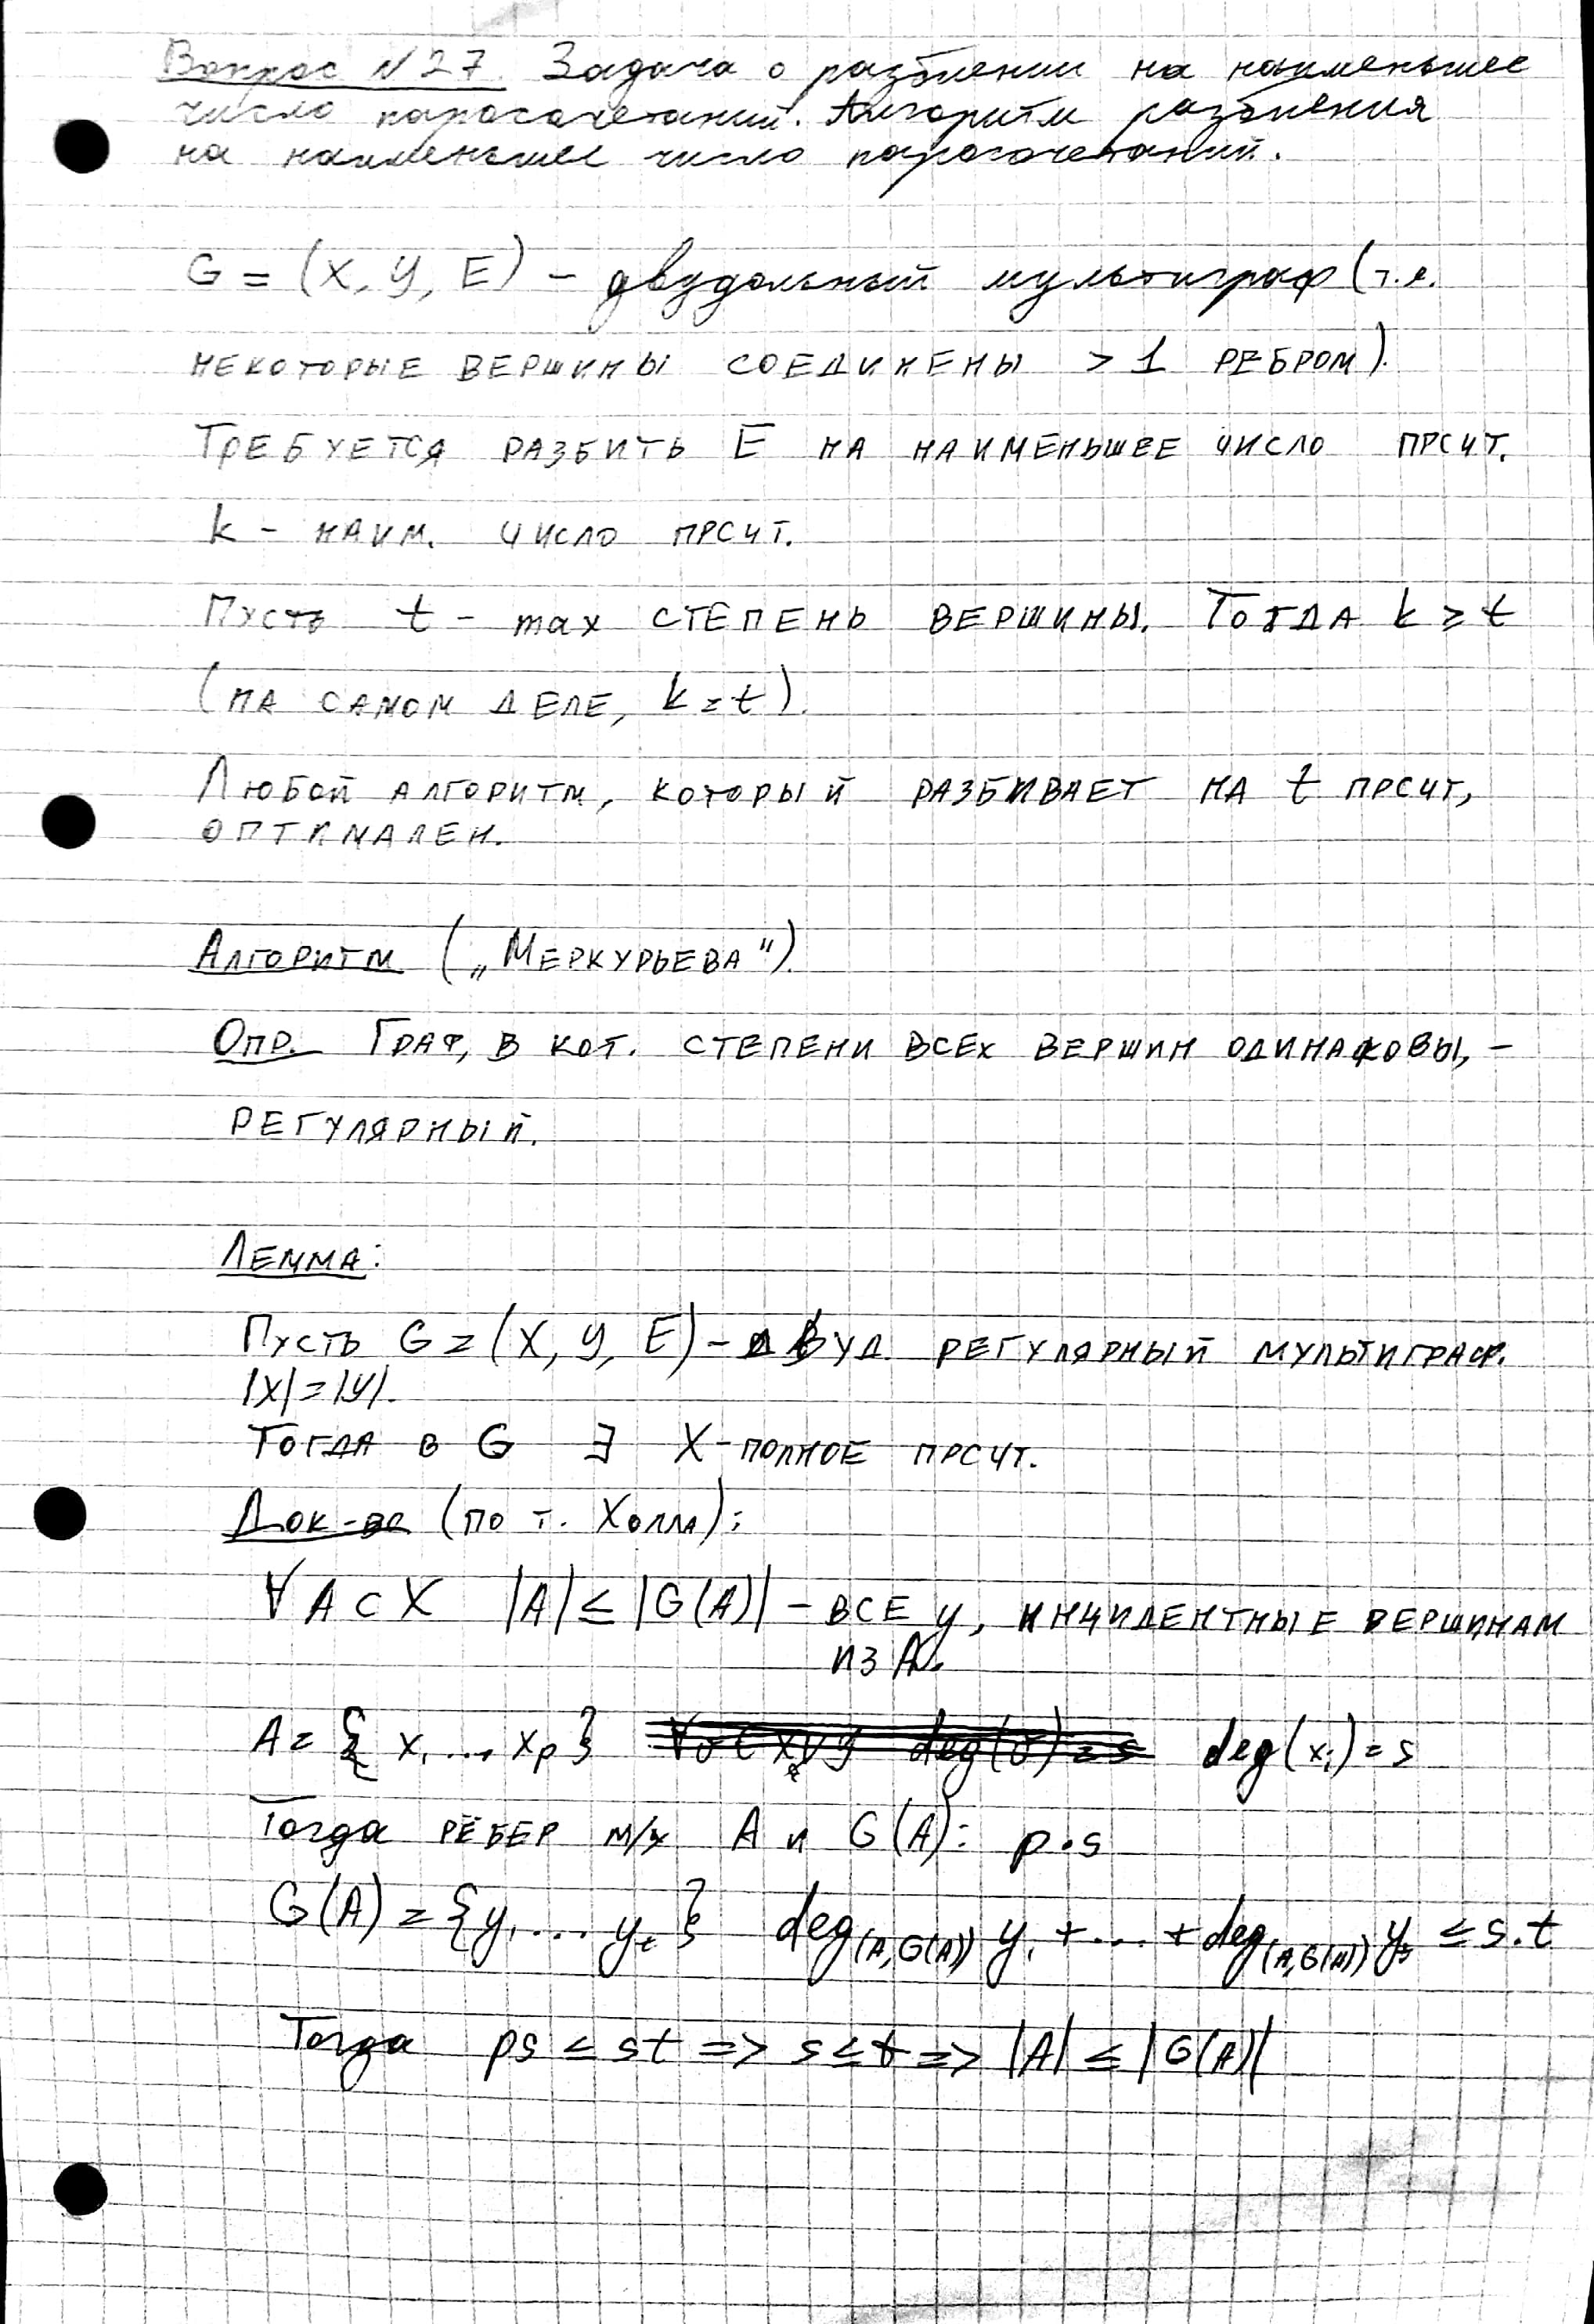 Вопрос №27. Задача о разбиении на наименьшее
число паросочетаний. Алгоритм разбиения
на наименьшее число паросочетаний.
G = (X, Y, E) – двудольный мультиграф (т.е.
НЕКОТОРЫЕ ВЕРШИНЫ СОЕДИНЕНЫ > 1 РЕБРОМ).
ТРЕБУЕТСЯ РАЗБИТЬ E НА НАИМЕНЬШЕЕ ЧИСЛО ПРСЧТ.
k – НАИМ. ЧИСЛО ПРСЧТ.
ПУСТЬ t – max СТЕПЕНЬ ВЕРШИНЫ. ТОГДА k ≥ t
(НА САМОМ ДЕЛЕ, k = t).
ЛЮБОЙ АЛГОРИТМ, КОТОРЫЙ РАЗБИВАЕТ НА t ПРСЧТ,
ОПТИМАЛЕН.
АЛГОРИТМ („МЕРКУРЬЕВА“).
ОПР. ГРАФ, В КОТ. СТЕПЕНИ ВСЕХ ВЕРШИН ОДИНАКОВЫ, –
РЕГУЛЯРНЫЙ.
ЛЕММА:
ПУСТЬ G = (X, Y, E) – ДВУД. РЕГУЛЯРНЫЙ МУЛЬТИГРАФ.
|X| = |Y|.
ТОГДА В G ∃ X-ПОЛНОЕ ПРСЧТ.
ДОК-ВО (ПО Т. ХОЛЛА):
∀ A ⊂ X |A| ≤ |G(A)| – ВСЕ y, ИНЦИДЕНТНЫЕ ВЕРШИНАМ
ИЗ A.
A = { x₁ ... xₚ } deg(xᵢ) = s
Тогда РЁБЕР М/У A и G(A): p·s
G(A) = {y₁ ... yₜ} deg(A,G(A)) y₁ + ... + deg(A,G(A)) yₜ ≤ s·t
Тогда ps ≤ st => s ≤ t => |A| ≤ |G(A)|